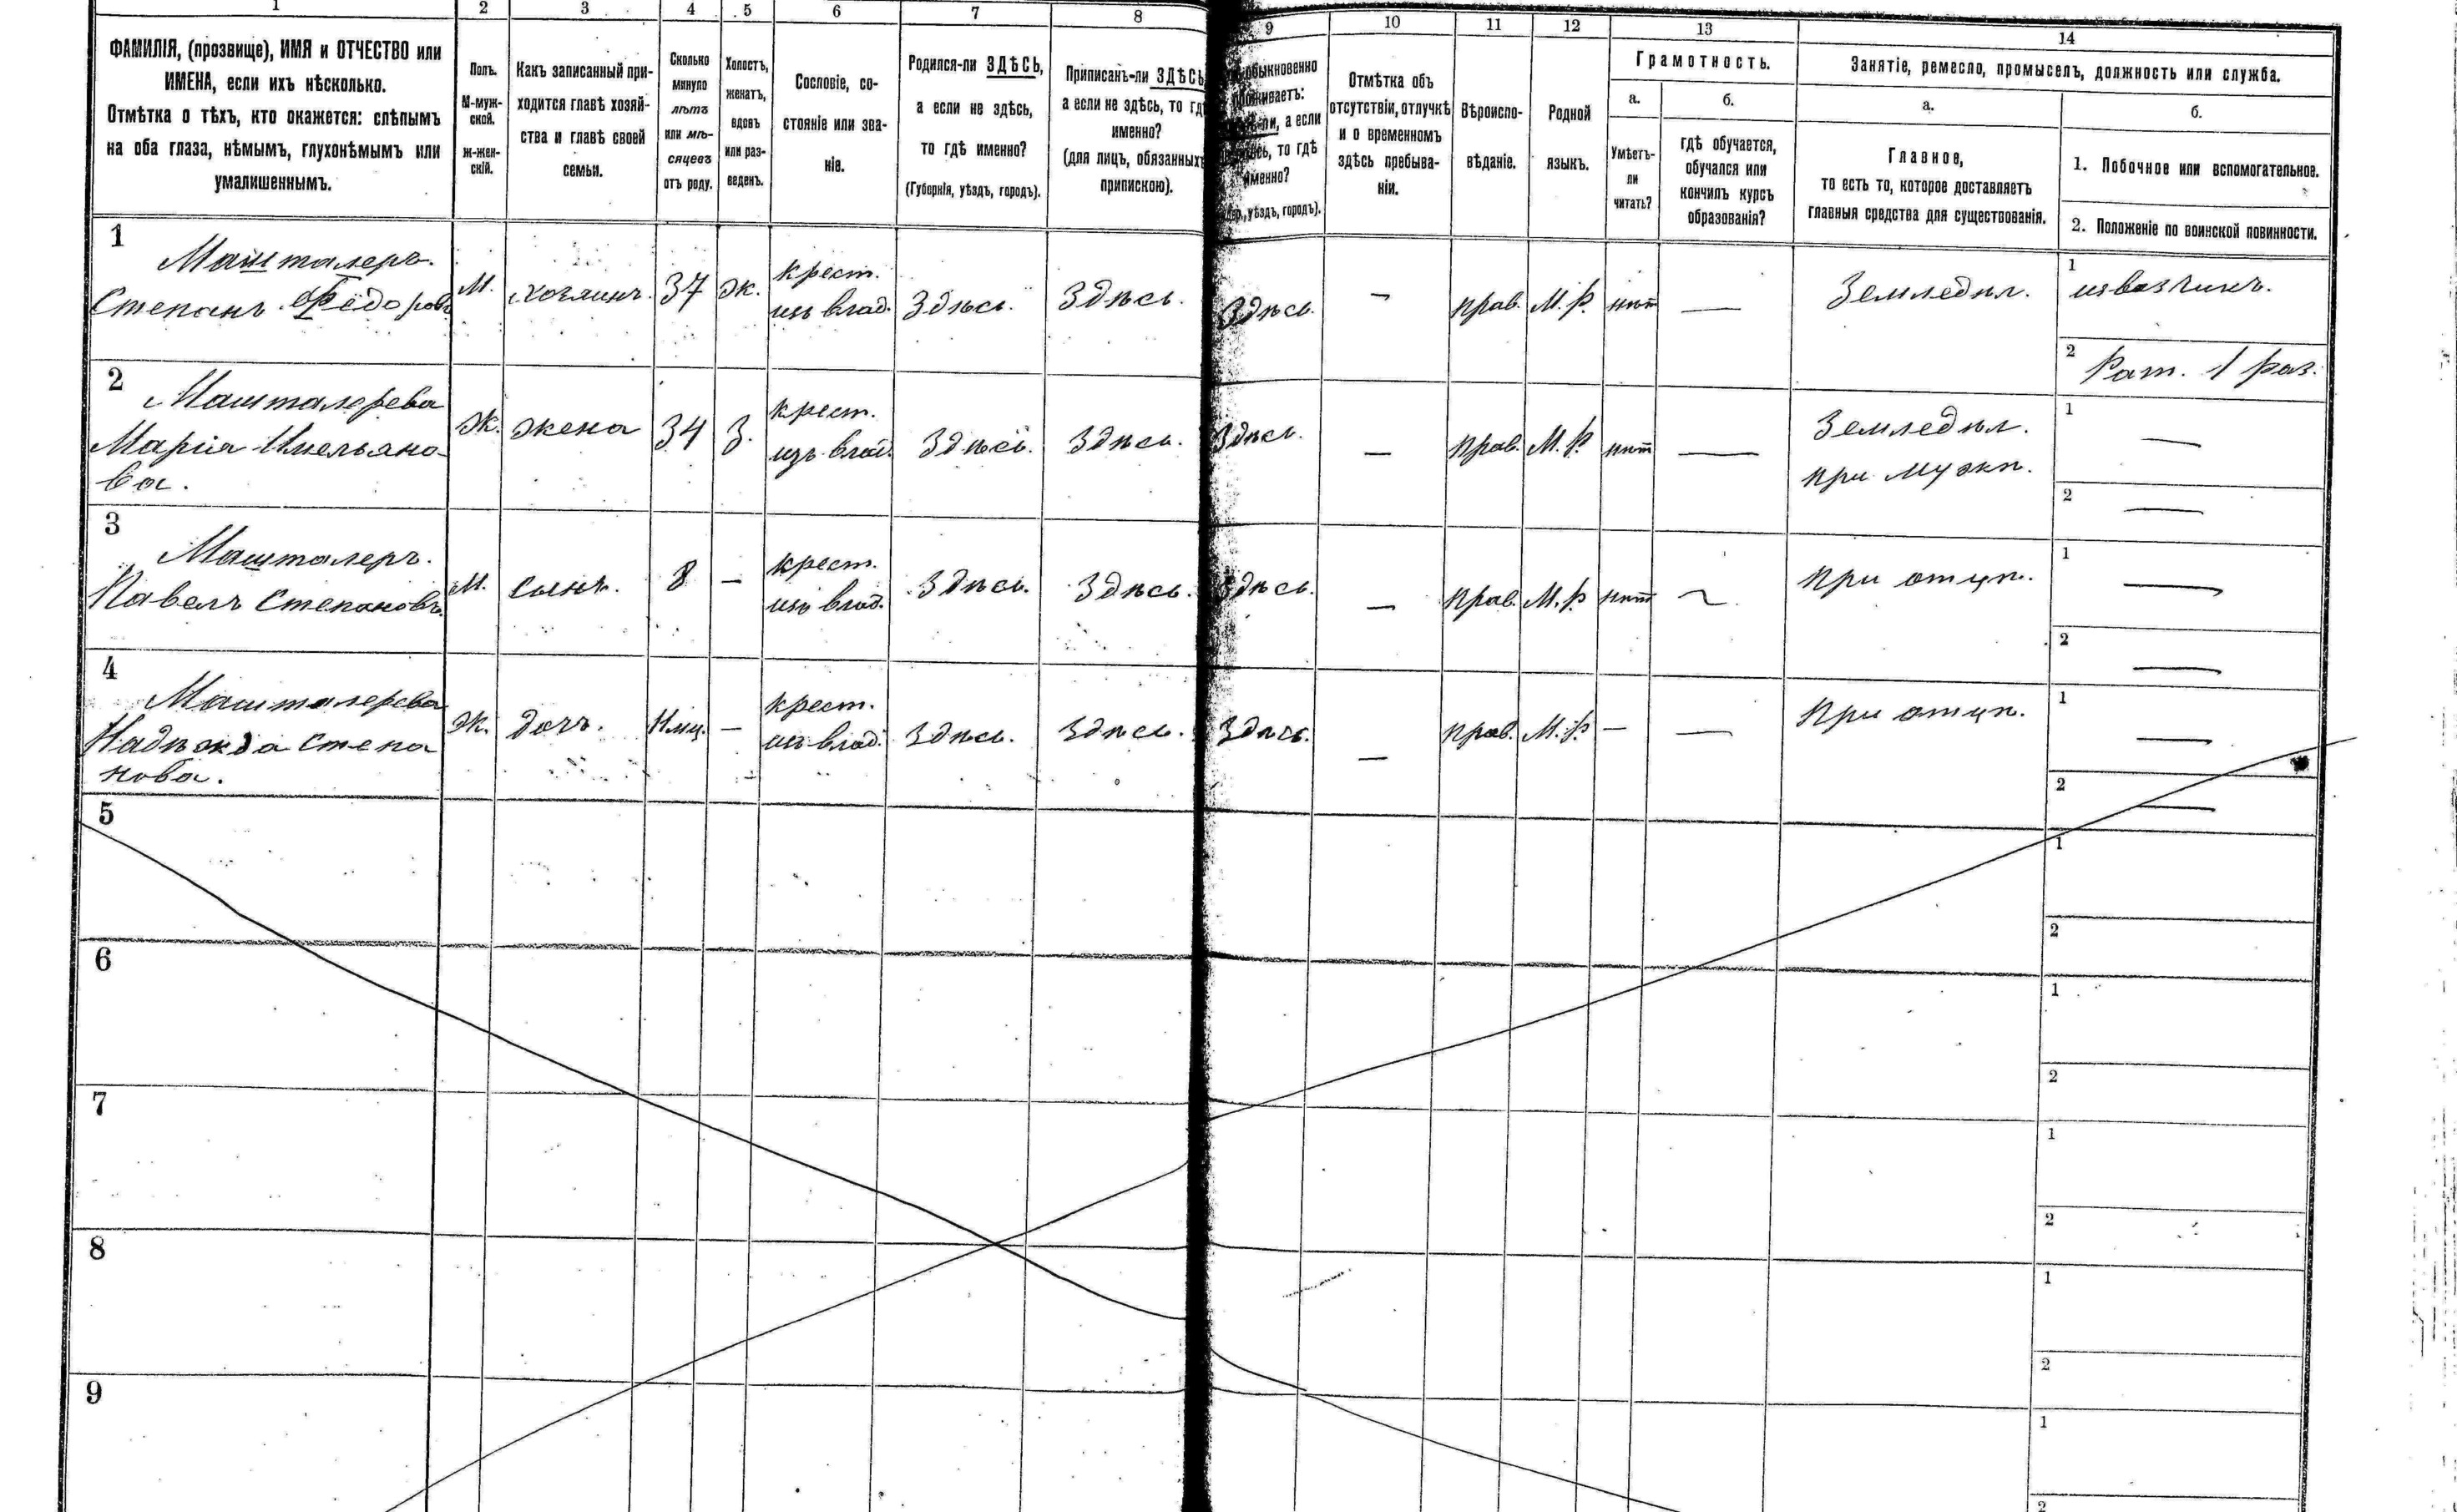 1 2 3 4 5 6 7 8 9 10 11 12 13 14
ФАМИЛІЯ, (прозвище), ИМЯ и ОТЧЕСТВО или
ИМЕНА, если ихъ нѣсколько.
Отмѣтка о тѣхъ, кто окажется: слѣпымъ
на оба глаза, нѣмымъ, глухонѣмымъ или
умалишеннымъ.
Полъ.
М-муж-
ской.
Ж-жен-
скій.
Какъ записанный при-
ходится главѣ хозяй-
ства и главѣ своей
семьи.
Сколько
минуло
лѣтъ
или мѣ-
сяцевъ
отъ роду.
Холостъ,
женатъ,
вдовъ
или раз-
веденъ.
Сословіе, со-
стояніе или зва-
ніе.
Родился-ли ЗДѢСЬ,
а если не здѣсь,
то гдѣ именно?
(Губернія, уѣздъ, городъ).
Приписанъ-ли ЗДѢСЬ
а если не здѣсь, то гдѣ
именно?
(для лицъ, обязанныхъ
припискою).
обыкновенно
проживаетъ:
а если
то гдѣ
именно?
уѣздъ, городъ).
Отмѣтка объ
отсутствіи, отлучкѣ
и о временномъ
здѣсь пребыва-
ніи.
Вѣроиспо-
вѣданіе.
Родной
языкъ.
Грамотность.
а.
Умѣетъ-
ли
читать?
б.
гдѣ обучается,
обучался или
кончилъ курсъ
образованія?
Занятіе, ремесло, промыселъ, должность или служба.
а.
Главное,
то есть то, которое доставляетъ
главныя средства для существованія.
б.
1. Побочное или вспомогательное.
2. Положеніе по воинской повинности.
1
Машталеръ.
Степанъ Федоровъ
М.
хозяинъ.
37
Ж.
крест.
изъ влад.
Здѣсь.
Здѣсь.
Здѣсь.
—
прав.
М. р.
нѣт
—
Земледѣл.
1
извозчикъ.
2
Рат. 1 раз.
2
Машталерева
Марія Емельяно-
ва.
Ж.
жена
34
З.
крест.
изъ влад.
Здѣсь.
Здѣсь.
Здѣсь.
—
прав.
М. р.
нѣт
—
Земледѣл.
при мужѣ.
1
—
2
—
3
Машталеръ.
Павелъ Степановъ.
М.
сынъ.
8
—
крест.
изъ влад.
Здѣсь.
Здѣсь.
Здѣсь.
—
прав.
М. р.
нѣт
—
при отцѣ.
1
—
2
—
4
Машталерева
Надѣжда Степа
нова.
Ж.
дочь.
—
крест.
изъ влад.
Здѣсь.
Здѣсь.
Здѣсь.
—
прав.
М. р.
—
—
при отцѣ.
1
—
2
—
5
1
2
6
1
2
7
1
2
8
1
2
9
1
2